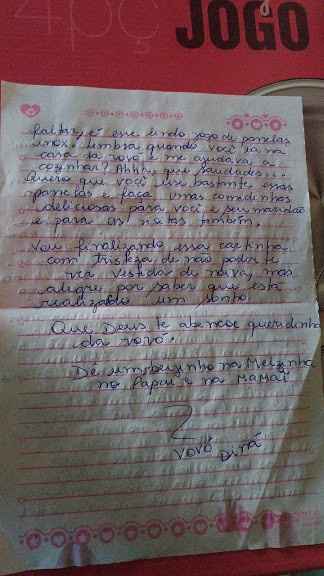 4pç
JOGO
faltar, é esse lindo jogo de panelas
inox. Lembra quando você ia na
casa da vovó e me ajudava a
cozinhar? Ahh, que saudades...
Quero que você use bastante essas
panelas e faça umas comidinhas
deliciosas para você e seu maridão
e para os netos também.
Vou finalizando essa cartinha
com tristeza de não poder te
ver vestida de noiva, mas
alegre por saber que está
realizando um sonho.
Que Deus te abençoe queridinha
da vovó.
Dê um beijinho na
no Papai e na Mamãe
Vovó Dirá